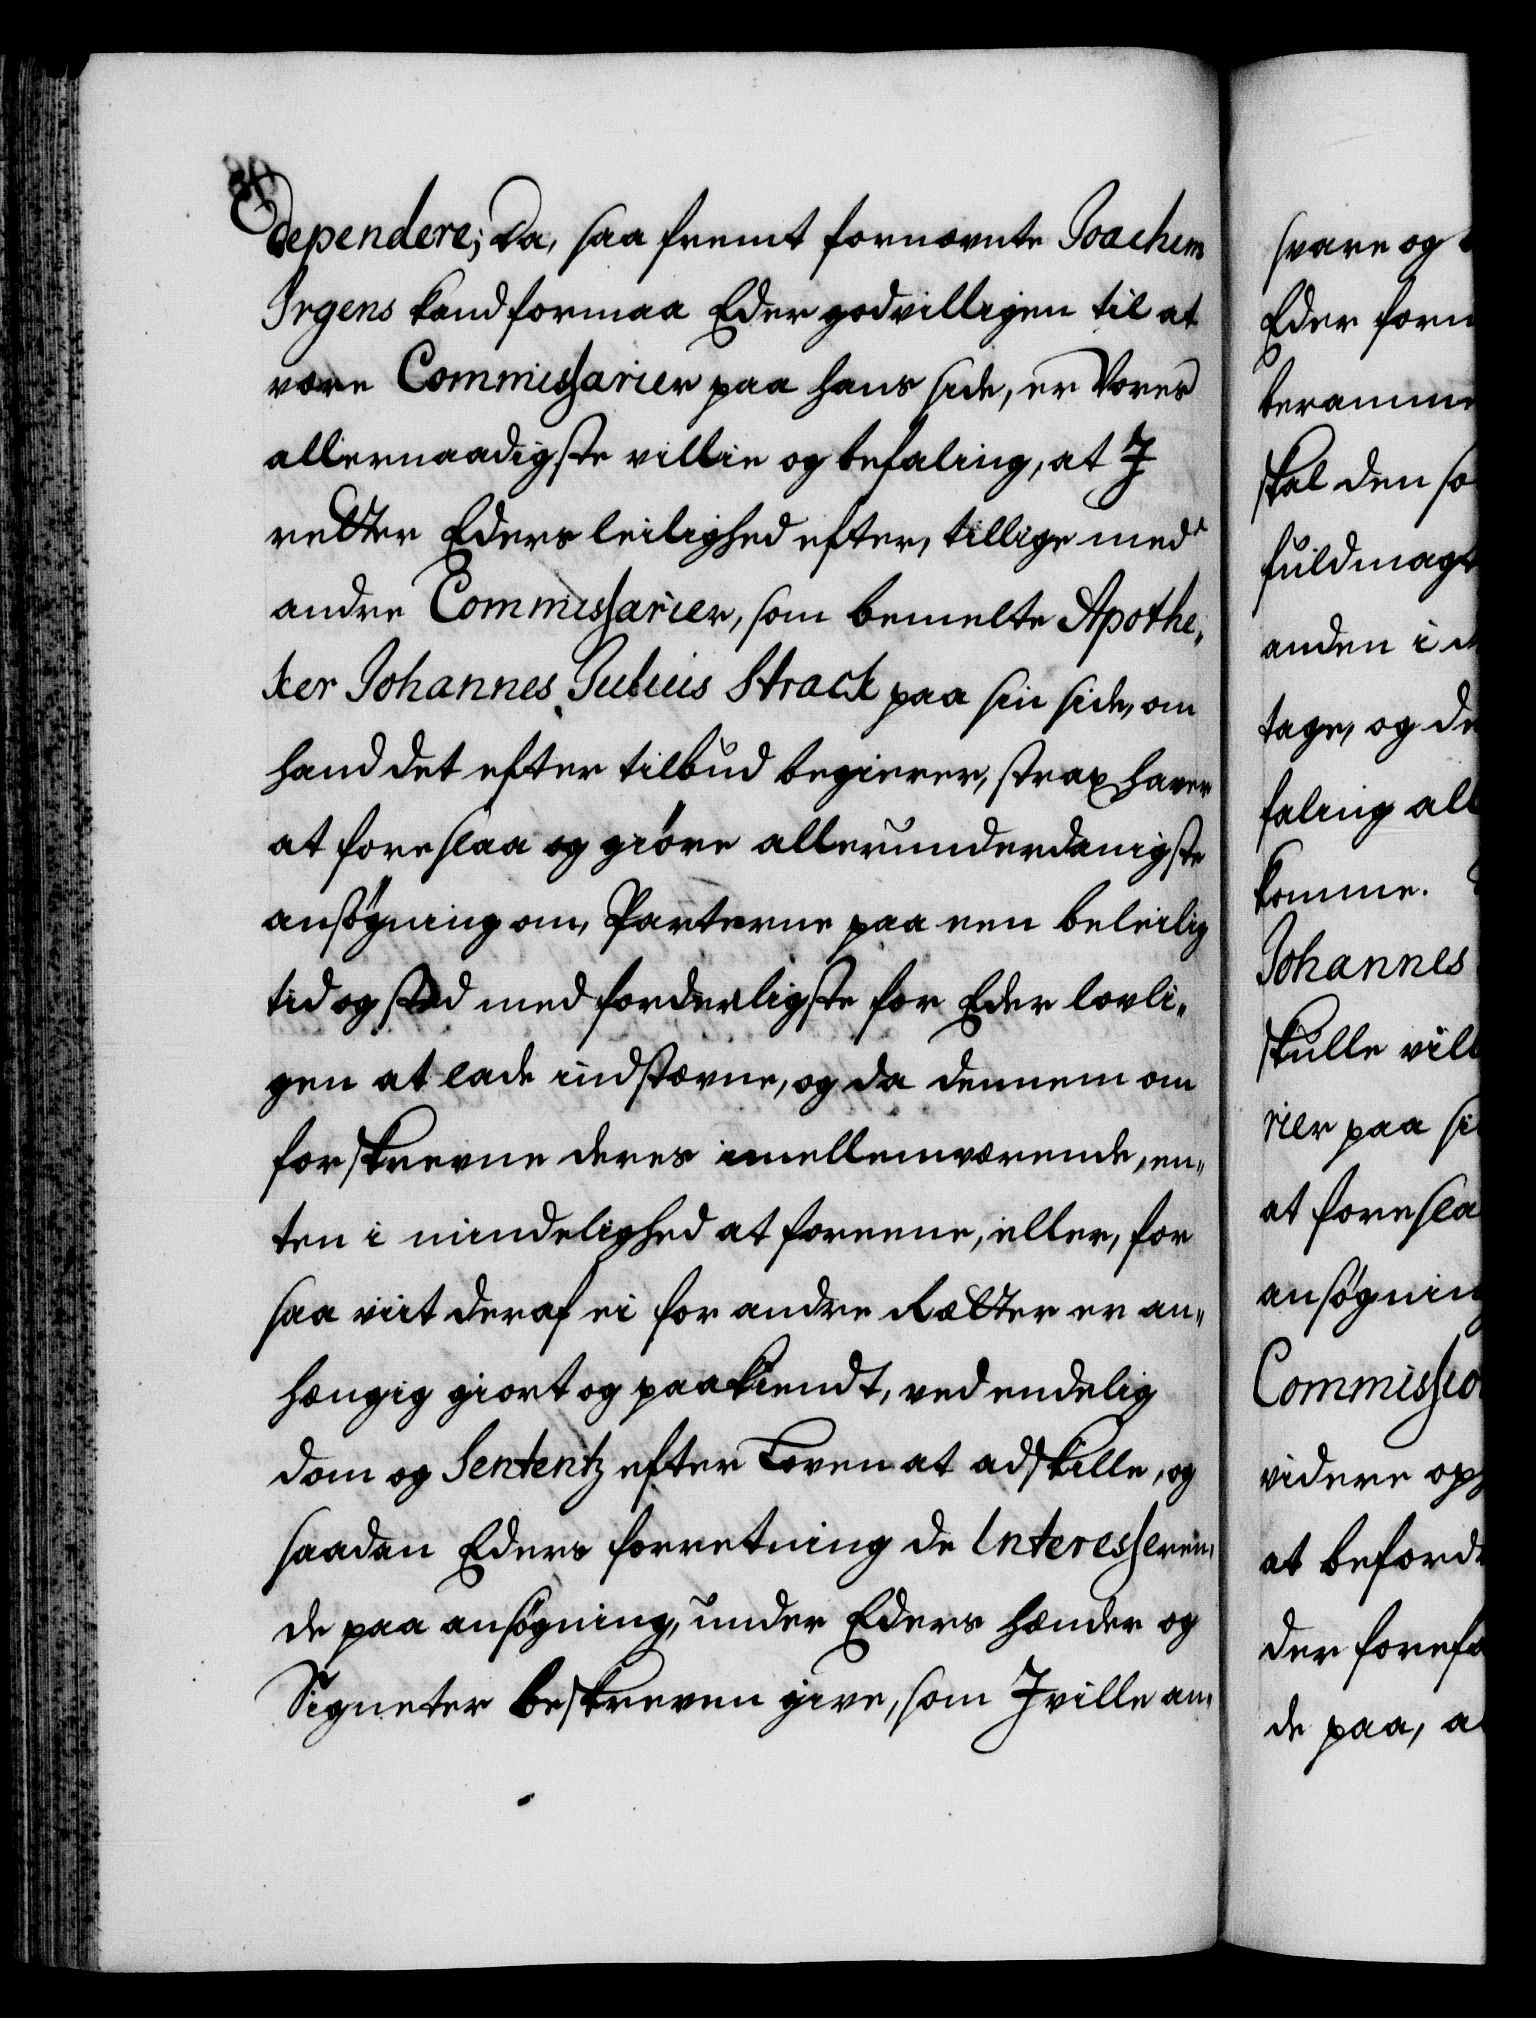 dependere; da, saa fremt fornævnte Joachim
Irgens kand formaa Eder godvilligen til at
være Commissarier paa hans side, er Vores
allernaadigste villie og befaling, at I
retter Eders leilighed efter, tillige med
andre Commissarier, som bemelte Apothe„
ker Johannes Julius Strack paa sin side, om
hand det efter tilbud begierer, strax haver
at foreslaa og giöre allerunderdanigste
ansögning om, Parterne paa een beleilig
tid og sted med forderligste for Eder lovli„
gen at lade indstævne, og da dennem om
forskrevne deres imellemværende, en„
ten i mindelighed at foreene, eller, for
saa vit deraf ei for andre Rætter er an„
hængig giort og paakiendt, ved endelig
dom og Sententz efter Loven at adskille, og
saadan Eders forretning de Interesseren„
de paa ansögning, under Eders hænder og
Signeter beskreven give, som I ville an„
svare og
Eder forn
beramme
skal den so
fuldmagt
anden i d
tage, og de
faling all
komme.
Johannes
skulle vill
rier paa si
at foresla
ansögning
Commissio
videre op
at beford
der forefa
de paa, a